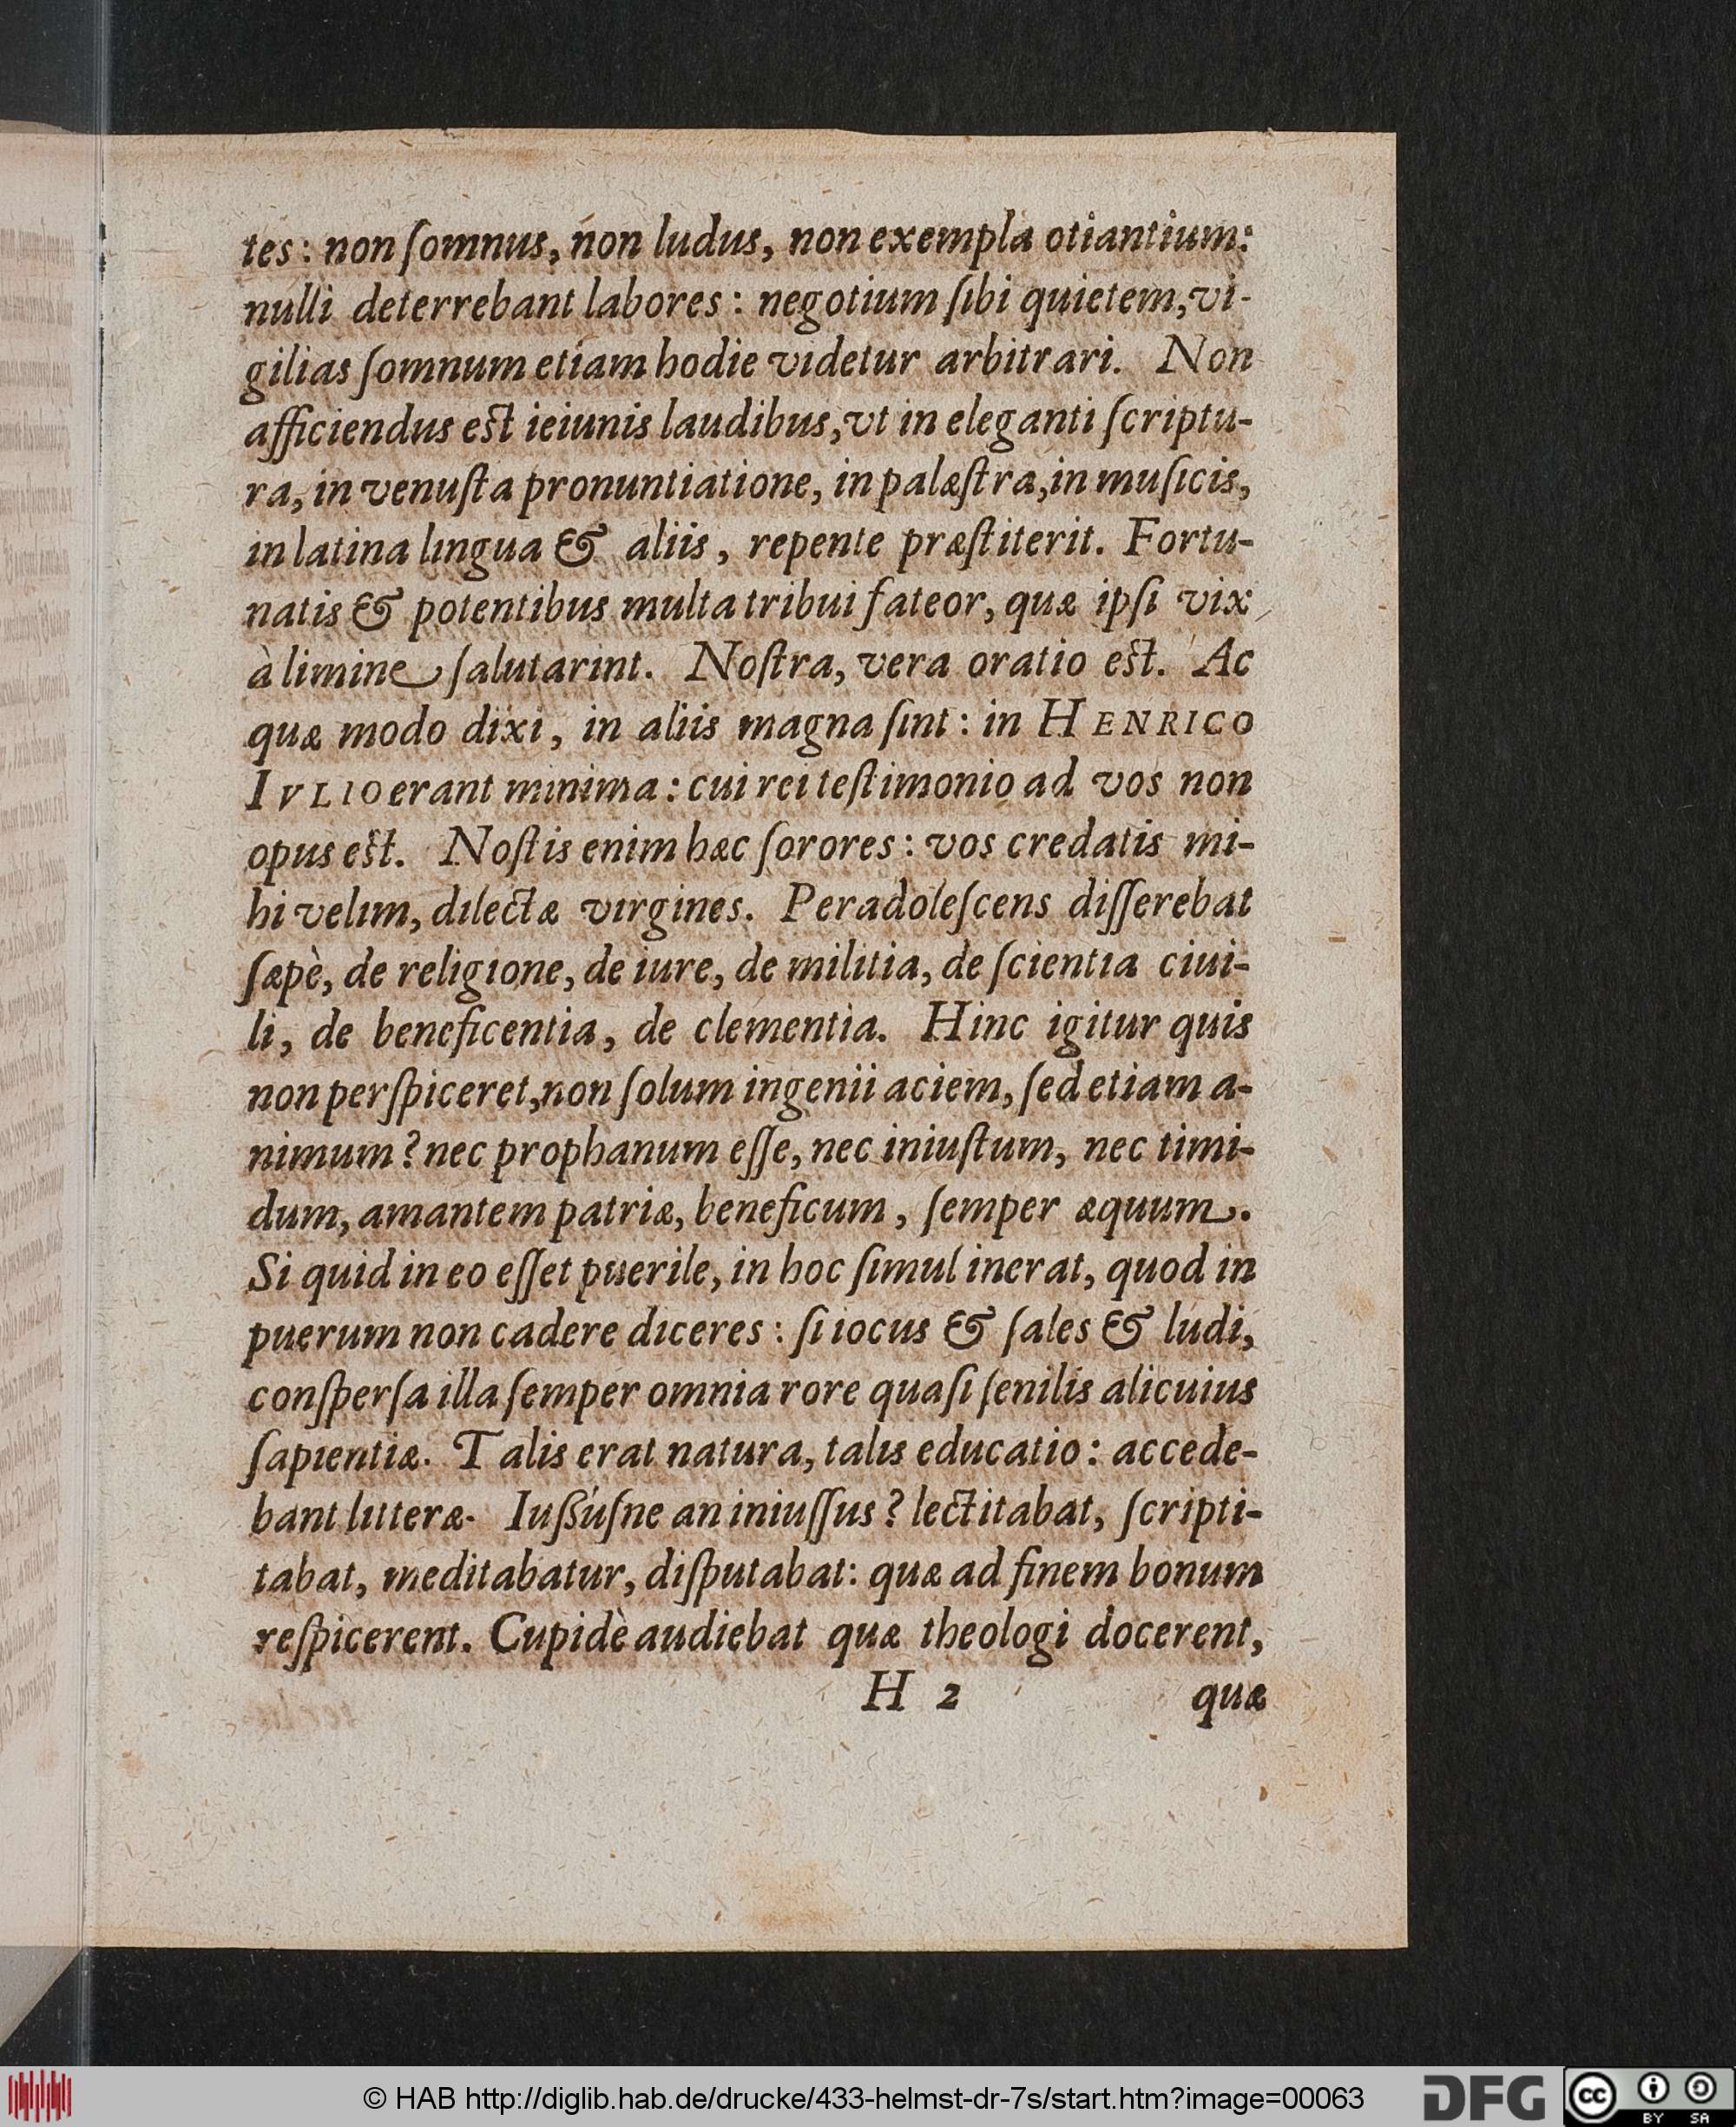 tes: non ſomnus, non ludus, non exempla otiantium:
nulli deterrebant labores: negotium ſibi quietem, vi-
gilias ſomnum etiam hodie videtur arbitrari. Non
afficiendus est ieiunis laudibus, vt in eleganti ſcriptu-
ra, in venuſta pronuntiatione, in palæſtra, in muſicis,
in latina lingua & aliis, repente præſtiterit. Fortu-
natis & potentibus multa tribui fateor, quæ ipſi vix
à limine ſalutarint. Noſtra, vera oratio est. Ac
quæ modo dixi, in aliis magna ſint: in HENRICO
IVLIO erant minima: cui rei teſtimonio ad vos non
opus est. Noſtis enim hæc ſorores: vos credatis mi-
hi velim, dilectæ virgines. Peradoleſcens diſſerebat
ſæpè, de religione, de iure, de militia, de ſcientia ciui-
li, de beneficentia, de clementia. Hinc igitur quis
non perſpiceret, non ſolum ingenii aciem, ſed etiam a-
nimum? nec prophanum eſſe, nec iniuſtum, nec timi-
dum, amantem patriæ, beneficum, ſemper æquum.
Si quid in eo eſſet puerile, in hoc ſimul inerat, quod in
puerum non cadere diceres: ſi iocus & ſales & ludi,
conſperſa illa ſemper omnia rore quaſi ſenilis alicuius
ſapientiæ. Talis erat natura, talis educatio: accede-
bant litteræ. Iuſsúſne an iniuſſus? lectitabat, ſcripti-
tabat, meditabatur, diſputabat: quæ ad finem bonum
reſpicerent. Cupidè audiebat quæ theologi docerent,
H 2 quæ
© HAB http://diglib.hab.de/drucke/433-helmst-dr-7s/start.htm?image=00063
DFG
cc BY SA